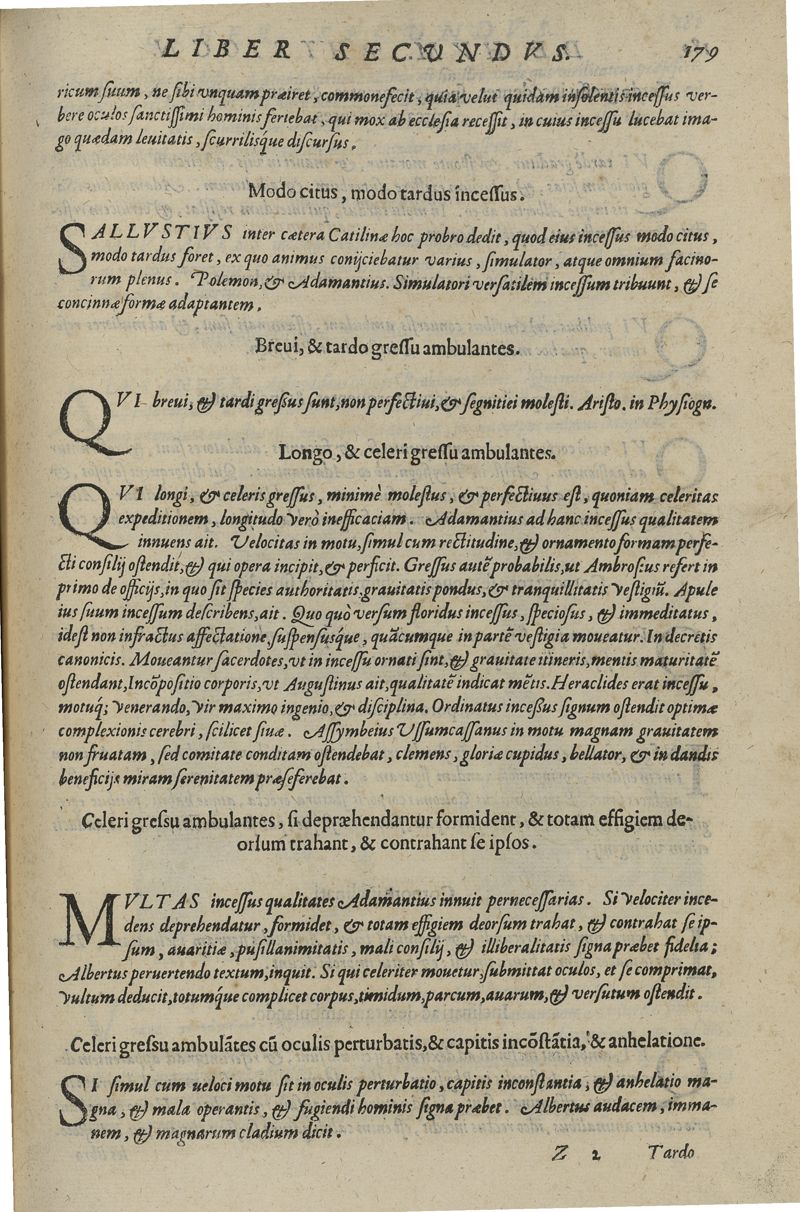 LIBER SECUNDVS. 179
ricum ſuum, ne ſibi vnquam præiret, commonefecit, quia velut quidam inſolentis inceſſus ver-
bere oculos ſanctiſſimi hominis feriebat, qui mox ab eccleſia receſſit, in cuius inceſſu lucebat ima-
go quædam leuitatis, ſcurrilisq́ue diſcurſus.
Modo citus, modo tardus inceſſus.
SALLVSTIVS inter cætera Catilinæ hoc probro dedit, quod eius inceſſus modo citus,
modo tardus foret, ex quo animus conijciebatur varius, ſimulator, atque omnium facino-
rum plenus. Polemon, & Adamantius. Simulatori verſatilem inceſſum tribuunt, & ſe
concinnæ formæ adaptantem.
Breui, & tardo greſſu ambulantes.
QVI breui, & tardi greßus ſunt, non perfectiui, & ſegnitiei moleſti. Ariſto. in Phyſiogn.
Longo, & celeri greſſu ambulantes.
QVI longi, & celeris greſſus, minimè moleſtus, & perfectiuus eſt, quoniam celeritas
expeditionem, longitudo verò inefficaciam. Adamantius ad hanc inceſſus qualitatem
innuens ait. Velocitas in motu, ſimul cum rectitudine, & ornamento formam perfe-
cti conſilij oſtendit, & qui opera incipit, & perficit. Greſſus autẽ probabilis, ut Ambroſius refert in
primo de officijs, in quo ſit ſpecies authoritatis, grauitatis pondus, & tranquillitatis veſtigiũ. Apule
ius ſuum inceſſum deſcribens, ait. Quo quò verſum floridus inceſſus, ſpecioſus, & immeditatus,
ideſt non infractus affectatione, ſuſpenſusq́ue, quãcumque in partẽ veſtigia moueatur. In decretis
canonicis. Moueantur ſacerdotes, vt in inceſſu ornati ſint, & grauitate itineris, mentis maturitatẽ
oſtendant, Incõpoſitio corporis, vt Auguſtinus ait, qualitatẽ indicat mẽtis. Heraclides erat inceſſu,
motuq́; venerando, vir maximo ingenio, & diſciplina. Ordinatus inceßus ſignum oſtendit optimæ
complexionis cerebri, ſcilicet ſiuæ. Aſſymbeius Vſſumcaſſanus in motu magnam grauitatem
non fruatam, ſed comitate conditam oſtendebat, clemens, gloriæ cupidus, bellator, & in dandis
beneficijs miram ſerenitatem præſeferebat.
Celeri greſsu ambulantes, ſi depræhendantur formident, & totam effigiem de-
orſum trahant, & contrahant ſe ipſos.
MVLTAS inceſſus qualitates Adamantius innuit perneceſſarias. Si velociter ince-
dens deprehendatur, formidet, & totam effigiem deorſum trahat, & contrahat ſe ip-
ſum, auaritiæ, puſillanimitatis, mali conſilij, & illiberalitatis ſigna præbet fidelia;
Albertus peruertendo textum, inquit. Si qui celeriter mouetur, ſubmittat oculos, et ſe comprimat,
vultum deducit, totumq́ue complicet corpus, timidum, parcum, auarum, & verſutum oſtendit.
Celeri greſsu ambulãtes cũ oculis perturbatis, & capitis incõſtãtia, & anhelatione.
SI ſimul cum ueloci motu ſit in oculis perturbatio, capitis inconſtantia, & anhelatio ma-
gna, & mala operantis, & fugiendi hominis ſigna præbet. Albertus audacem, imma-
nem, & magnarum cladium dicit.
Z 2 Tardo